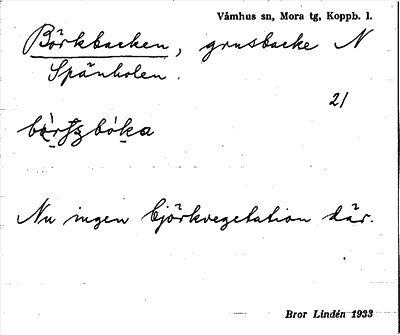 Våmhus sn, Mora tg, Koppb. l.
Börkbacken, grusbacke N
Spånholen.
21
bóka
Nu ingen björkvegetation där.
Bror Lindén 1933